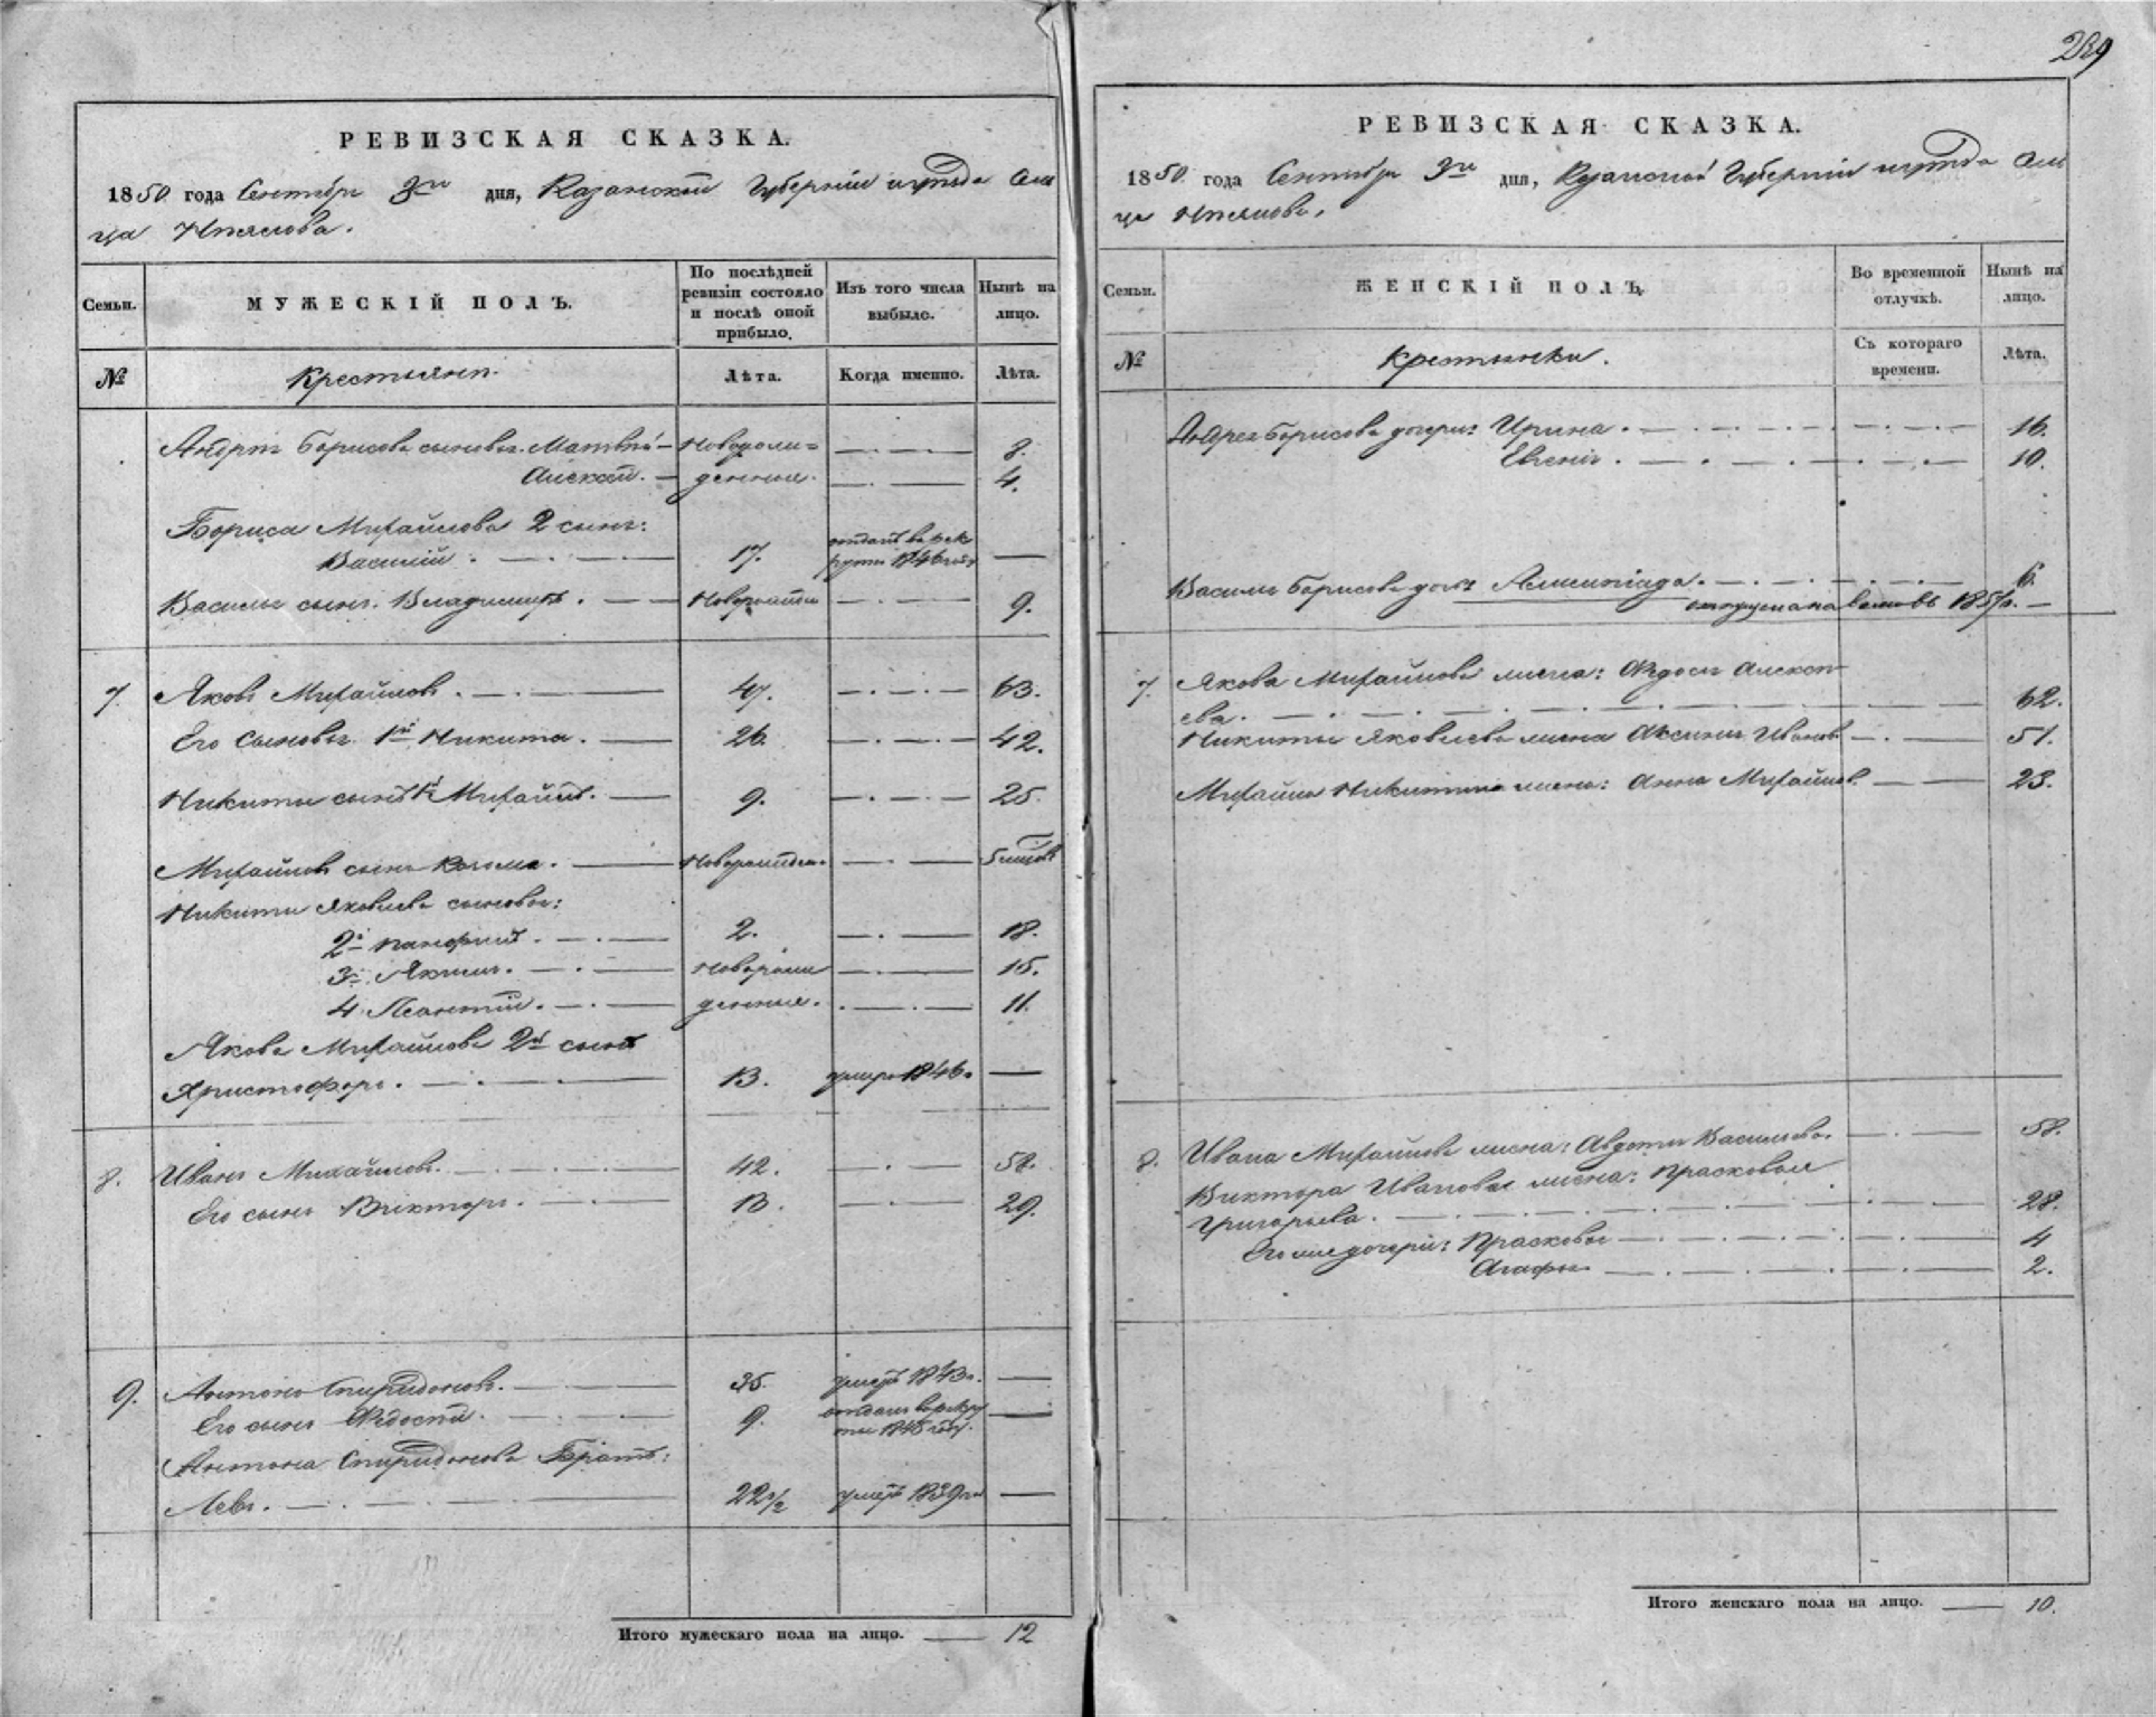 289
РЕВИЗСКАЯ СКАЗКА.
1850 года Сентября 3го дня, Казанской Губернии уезда Сель
ца
Семьи.
МУЖЕСКІЙ ПОЛЪ.
По послѣдней ревизіи состояло и послѣ оной прибыло.
Изъ того числа выбыло.
Нынѣ на лицо.
№
Крестьяне.
Лѣта.
Когда именно.
Лѣта.
Андрея Борисова сыновья. Матвѣй — Новорож= 8.
Алексей. — денные. 4.
Бориса Михайлова 2 сынъ:
Василій. 17. отданъ в рек
руты 1846 года
Василья сынъ. Владимиръ. Новорожден 9.
7. Яковъ Михайловъ. 47. 63.
Его сыновья 1й Никита. 26. 42.
Никиты сынъ 1й Михайлъ. 9. 25.
Михайлы сынъ Козьма. Новорожден. 5
Никиты Яковлева сыновья:
2й Панфилъ. 2. 18.
3й Якимъ. Новорож 15.
4 Леонтій. денные. 11.
Якова Михайлова 2й сынъ
Христофоръ. 13. умеръ 1846.
8. Иванъ Михайловъ. 42. 58.
Его сынъ Викторъ. 13. 29.
9. Антонъ Спиридоновъ. 35. умеръ 1843.
Его сынъ Федосей. 9. отданъ в рекру
ты году.
Антона Спиридонова Братъ:
Левъ. 22 1/2 умеръ 1839
Итого мужескаго пола на лицо. 12
РЕВИЗСКАЯ СКАЗКА.
1850 года Сентября 3го дня, Казанской Губернии уезда Сель
ца
Семьи.
ЖЕНСКІЙ ПОЛЪ.
Во временной отлучкѣ.
Нынѣ на лицо.
№
Крестьянки.
Съ котораго времени.
Лѣта.
Андрея Борисова дочери: Ирина. 16.
Евгенія. 10.
Василья Борисова дочь 6.
7. Якова Михайлова жена: Федосья Алексе
ева. 62.
Никиты Яковлева жена Аксинья Иванов 51.
Михайлы Никитина жена: Анна Михайлов. 23.
8. Ивана Михайлова жена: Авдотья Васильева. 58.
Виктора Иванова жена: Прасковья
Григорьева. 28.
Его же дочери: Прасковья 4
Агафья 2.
Итого женскаго пола на лицо. 10.